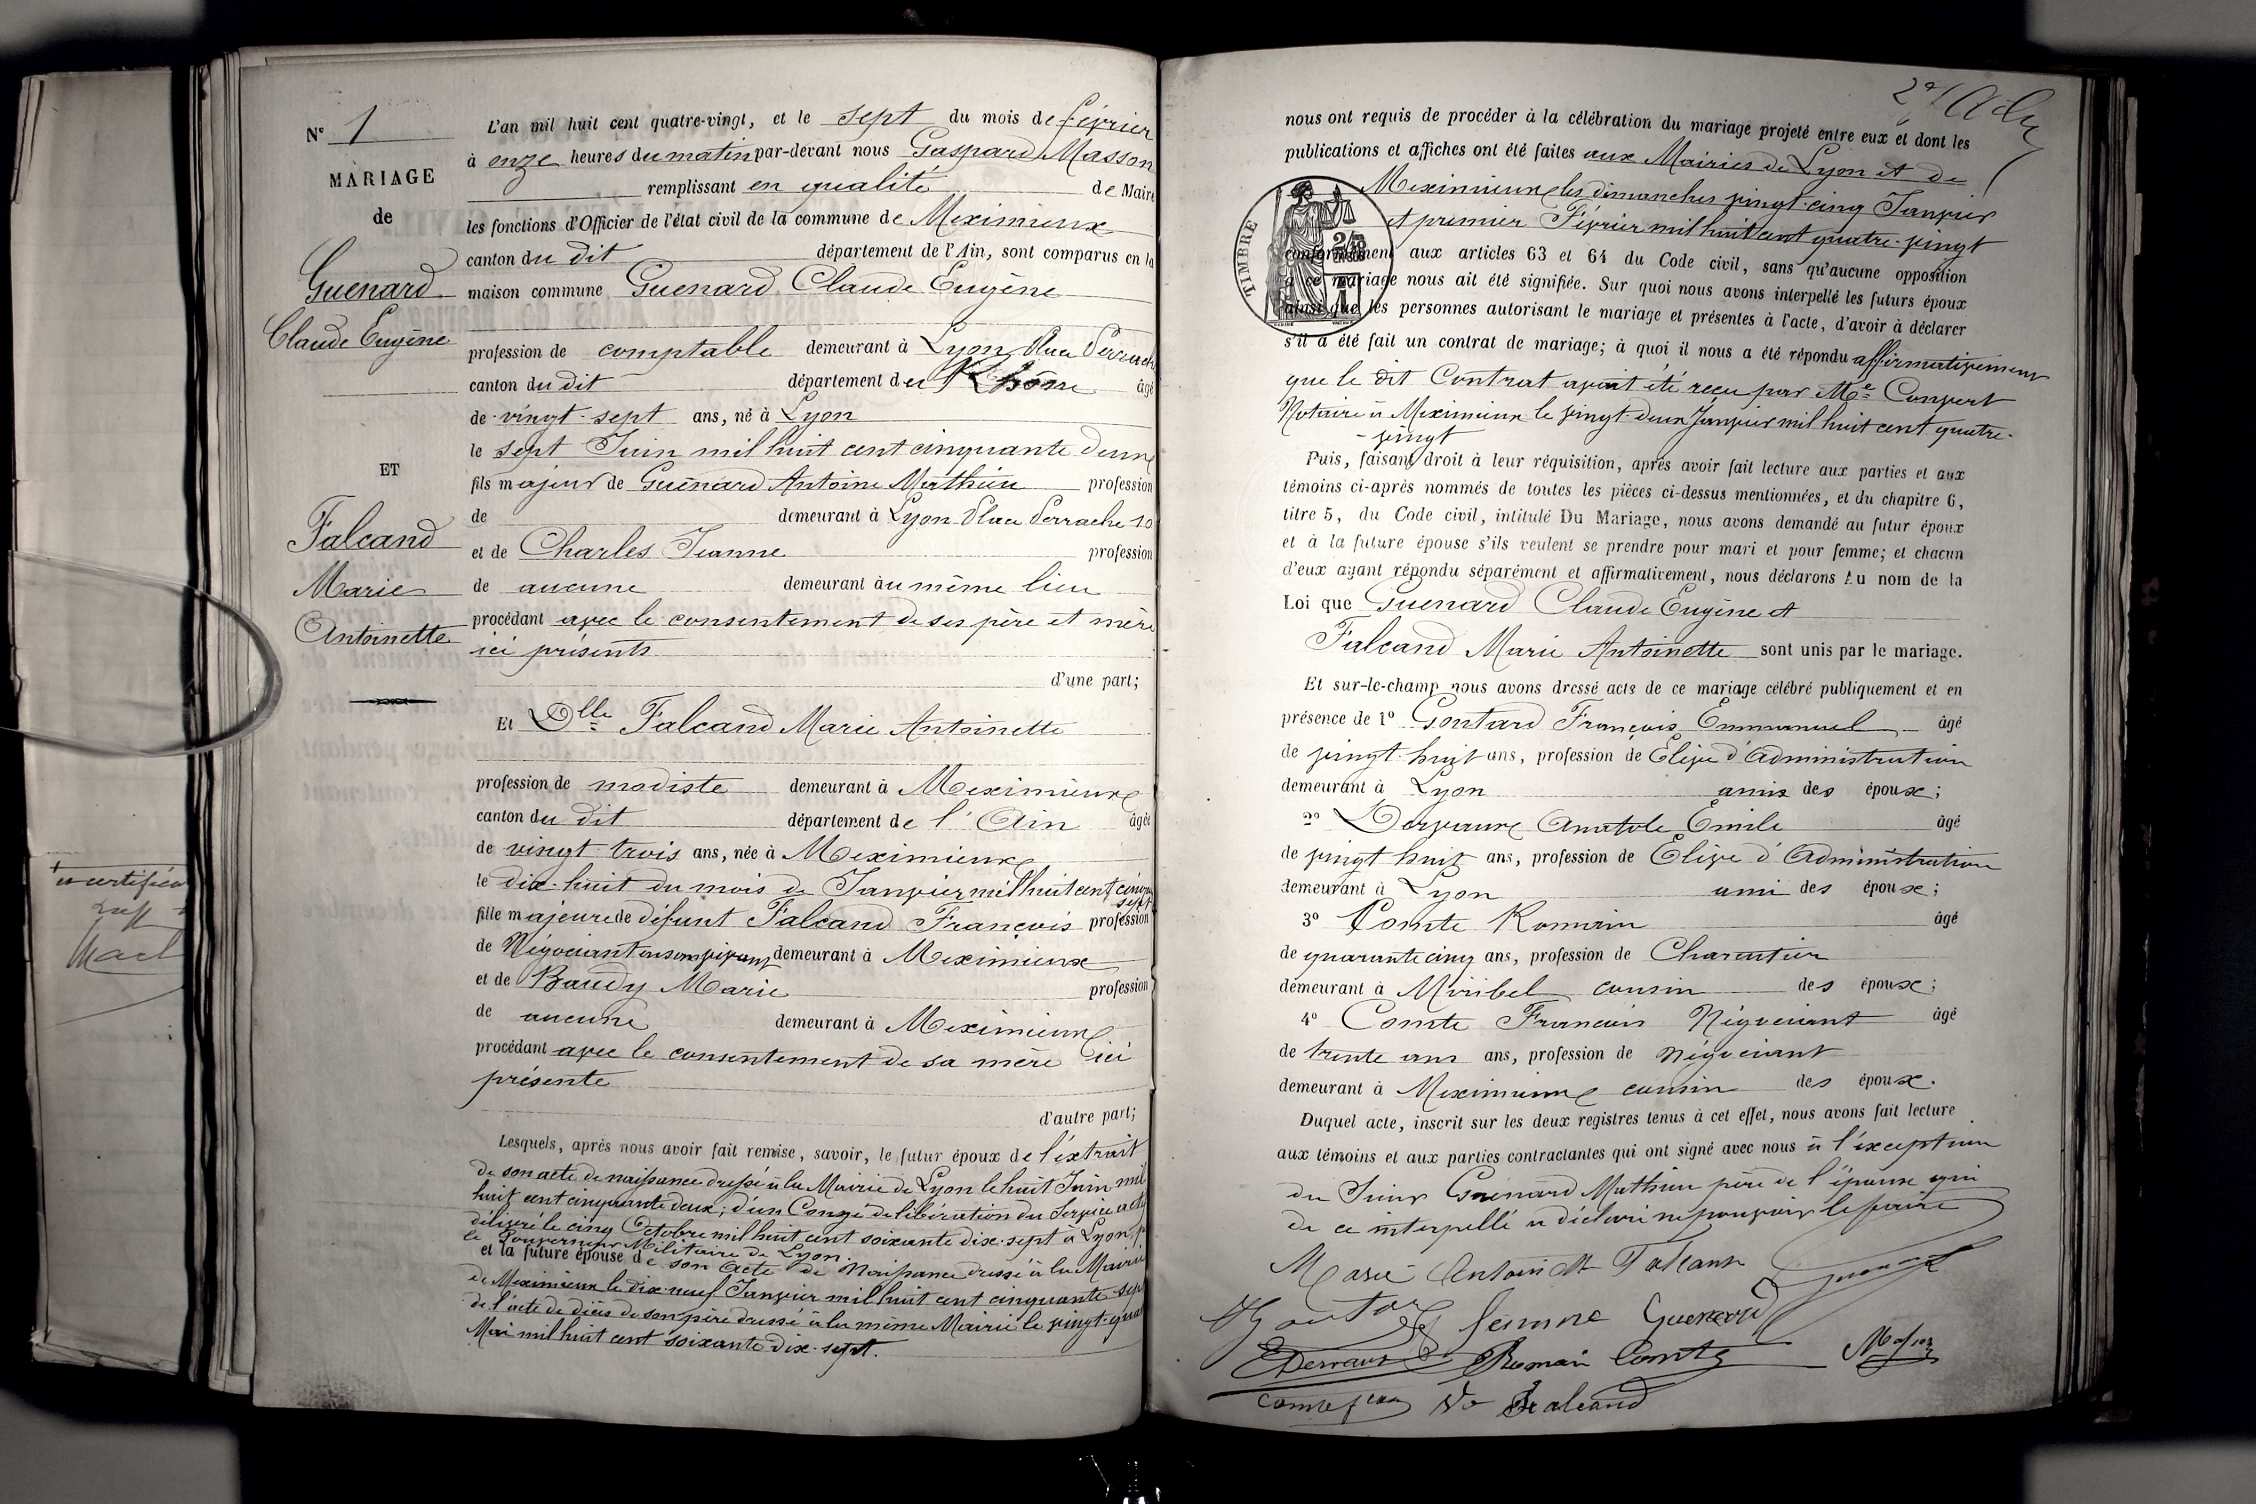 N° 1
MARIAGE
de
Guenard
Claude Eugène
ET
Falcand
Marie
Antoinette
L'an mil huit cent quatre-vingt, et le sept du mois de février
à onze heures du matin par-devant nous Gaspard Masson
remplissant en qualité de Maire
les fonctions d'Officier de l'état civil de la commune de Meximieux
canton du dit département de l'Ain, sont comparus en la
maison commune Guenard Claude Eugène
profession de comptable demeurant à Lyon Place Perrache
canton du dit département du Rhône âgé
de vingt-sept ans, né à Lyon
le sept Juin mil huit cent cinquante deux
fils majeur de Guénard Antoine Mathieu profession
de demeurant à Lyon Place Perrache 10
et de Charles Jeanne profession
de aucune demeurant au même lieu
procédant avec le consentement de ses père et mère
ici présents
d'une part;
Et Dlle Falcand Marie Antoinette
profession de modiste demeurant à Meximieux
canton du dit département de l'Ain âgée
de vingt-trois ans, née à Meximieux
le dix-huit du mois de Janvier mil huit cent cinqte
sept
fille majeure de défunt Falcand François profession
de Négociant en son vivant demeurant à Meximieux
et de Baudy Marie profession
de aucune demeurant à Meximieux
procédant avec le consentement de sa mère ici
présente
d'autre part;
Lesquels, après nous avoir fait remise, savoir, le futur époux de l'extrait
de son acte de naissance dressé à la Mairie de Lyon le huit Juin mil
huit cent cinquante deux; d'un Congé de libération du Service actif
délivré le cinq Octobre mil huit cent soixante dix-sept à Lyon, p
le Gouverneur Militaire de Lyon.
et la future épouse de son acte de Naissance dressé à la Mairie
de Meximieux le dix neuf Janvier mil huit cent cinquante sept
de l'acte de décès de son père dressé à la même Mairie le vingt-quat
Mai mil huit cent soixante dix-sept.
nous ont requis de procéder à la célébration du mariage projeté entre eux et dont les
publications et affiches ont été faites aux Mairies de Lyon et de
Meximieux les dimanches vingt-cinq Janvier
et premier Février mil huit cent quatre-vingt
conformément aux articles 63 et 64 du Code civil, sans qu'aucune opposition
à ce mariage nous ait été signifiée. Sur quoi nous avons interpellé les futurs époux
ainsi que les personnes autorisant le mariage et présentes à l'acte, d'avoir à déclarer
s'il a été fait un contrat de mariage; à quoi il nous a été répondu affirmativement
que le dit Contrat avait été reçu par Me Convert
Notaire à Meximieux le vingt-deux Janvier mil huit cent quatre-
-vingt
TIMBRE
Puis, faisant droit à leur réquisition, après avoir fait lecture aux parties et aux
témoins ci-après nommés de toutes les pièces ci-dessus mentionnées, et du chapitre 6,
titre 5, du Code civil, intitulé Du Mariage, nous avons demandé au futur époux
et à la future épouse s'ils veulent se prendre pour mari et pour femme; et chacun
d'eux ayant répondu séparément et affirmativement, nous déclarons Au nom de la
Loi que Guenard Claude Eugène et
Falcand Marie Antoinette sont unis par le mariage.
Et sur-le-champ nous avons dressé acte de ce mariage célébré publiquement et en
présence de 1° Gontard François Emmanuel âgé
de vingt-huit ans, profession de Elève d'Administration
demeurant à Lyon amis des époux;
2° Dervaux Anatole Emile âgé
de vingt huit ans, profession de Elève d'Administration
demeurant à Lyon ami des époux;
3° Comte Romain âgé
de quarante cinq ans, profession de Charcutier
demeurant à Miribel cousin des époux;
4° Comte François Négociant âgé
de trente ans ans, profession de Négociant
demeurant à Meximieux cousin des époux.
Duquel acte, inscrit sur les deux registres tenus à cet effet, nous avons fait lecture
aux témoins et aux parties contractantes qui ont signé avec nous à l'exception
du Sieur Guénard Mathieu père de l'époux qui
de ce interpellé a déclaré ne pouvoir le faire
Marie Antoinette Falcand Guenard
Gontard femme Guenard
EDervaux Romain Comte Masson
Comte fçois Ve Falcand